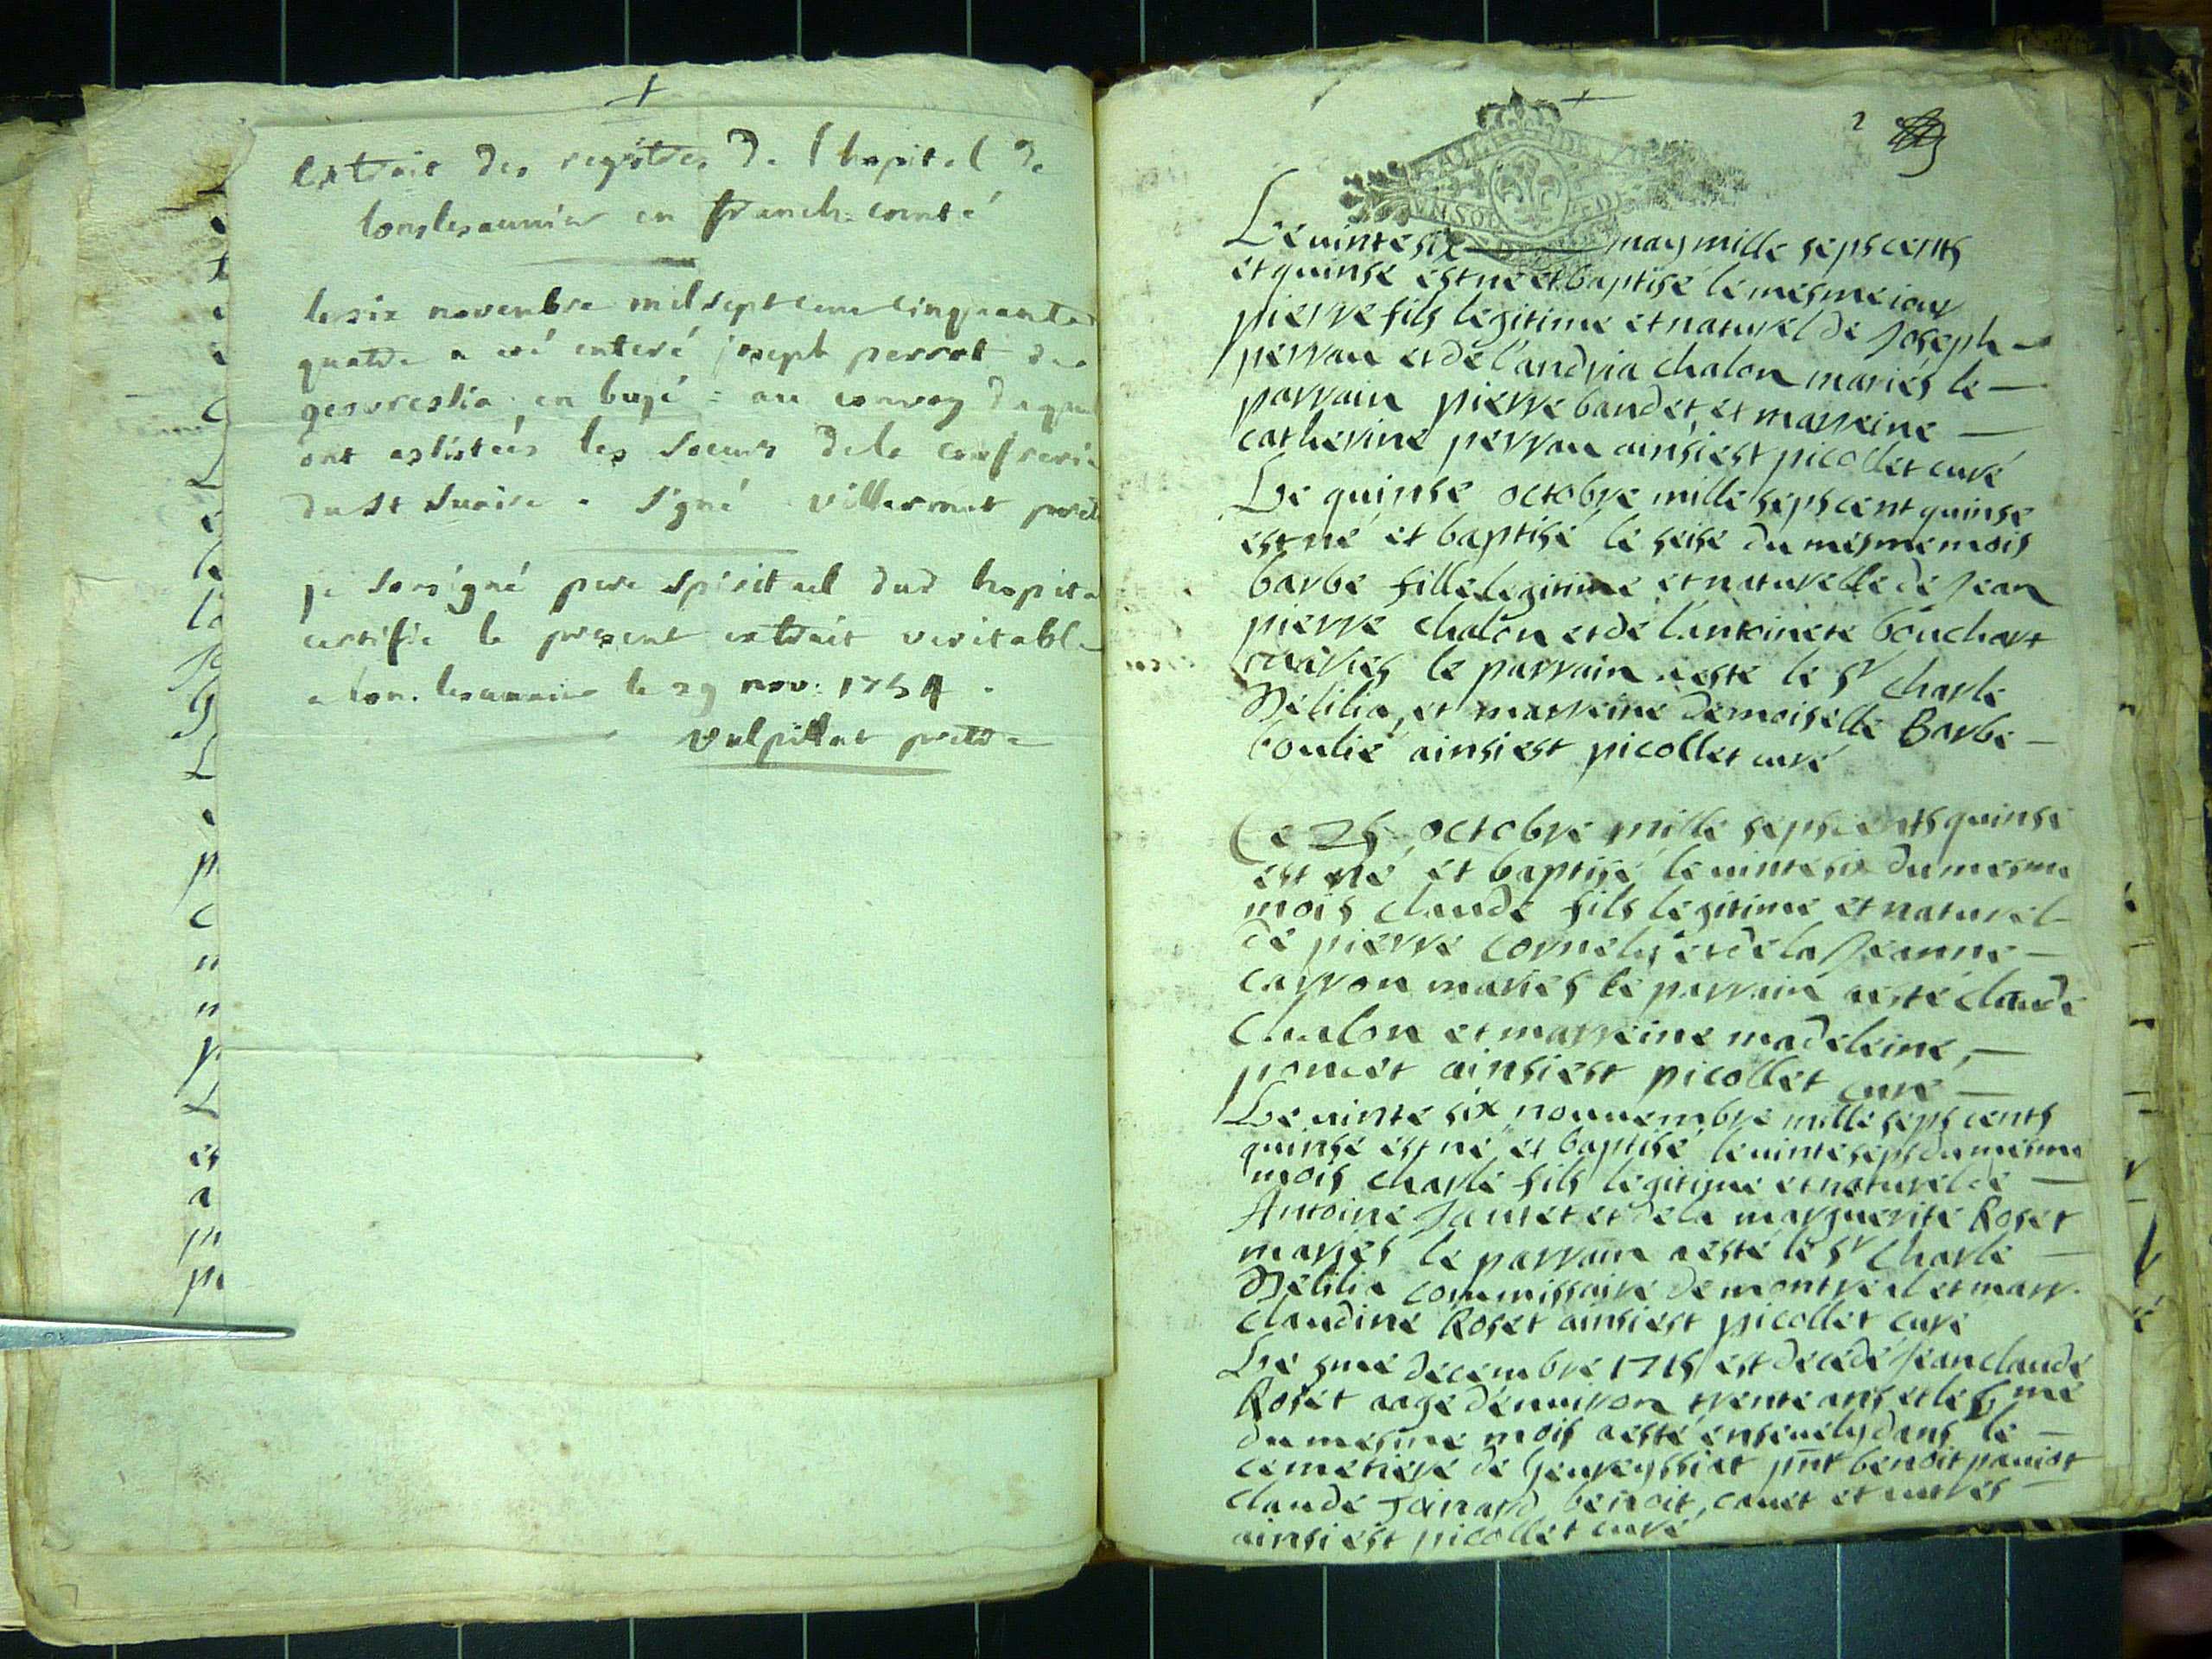 extrait des registres de l hopital de
lonslesaunier en franch. comté
le six novembre mil sept cent cinquante
quatre a eté enteré joseph perrot de
geovressia en bugé = au convoy duquel
ont assistées les soeurs de la confreri
du st suaire . signé villermet
je sousigné pere spirituel dud hopita
certifie le present extrait veritable
a lon. lesaunier le 29 nov: 1754 .
vulpillat pretre
2
Le uinte six may mille septs cents
et quinse est né et baptisé le mesme iour
pierre fils legitime et naturel de Joseph
perrau et de l'andria chalon mariés le
parrain pierre baudet, et marreine
catherine perrau ainsi est picollet curé
Le quinse octobre mille septs cent quinse
est né et baptisé le seise du mesme mois
barbe fille legitime et naturelle de Jean
pierre chalon et de l'antoinete bouchart
mariés le parrain a esté le sr charle
Delilia, et marreine demoiselle Barbe
boulié ainsi est picollet curé
Le 25 octobre mille septs cents quinse
est né et baptisé le uinte six du mesme
mois claude fils legitime et naturel
de pierre cornelu et de la Jeanne
carron mariés le parrain a esté claude
chalon et marreine madeleine,
poncet ainsi est picollet curé
Le uinte six nouuembre mille septs cents
quinse est né et baptisé le uinte septs du mesme
mois charle fils legitime et naturel de
Antoine Jauuet et de la marguerite Roset
mariés le parrain a esté le sr charle
Delilia commissaire de montreal et marr.
claudine Roset ainsi est picollet curé
Le 5me decembre 1715 est decedé Jean claude
Roset aagé d'enuiron trente ans et le me
du mesme mois a esté enseuely dans le
cemetiere de Geureyssiat pnt benoit pauiot
claude Joinard, benoit, cauet et autres
ainsi est picollet curé